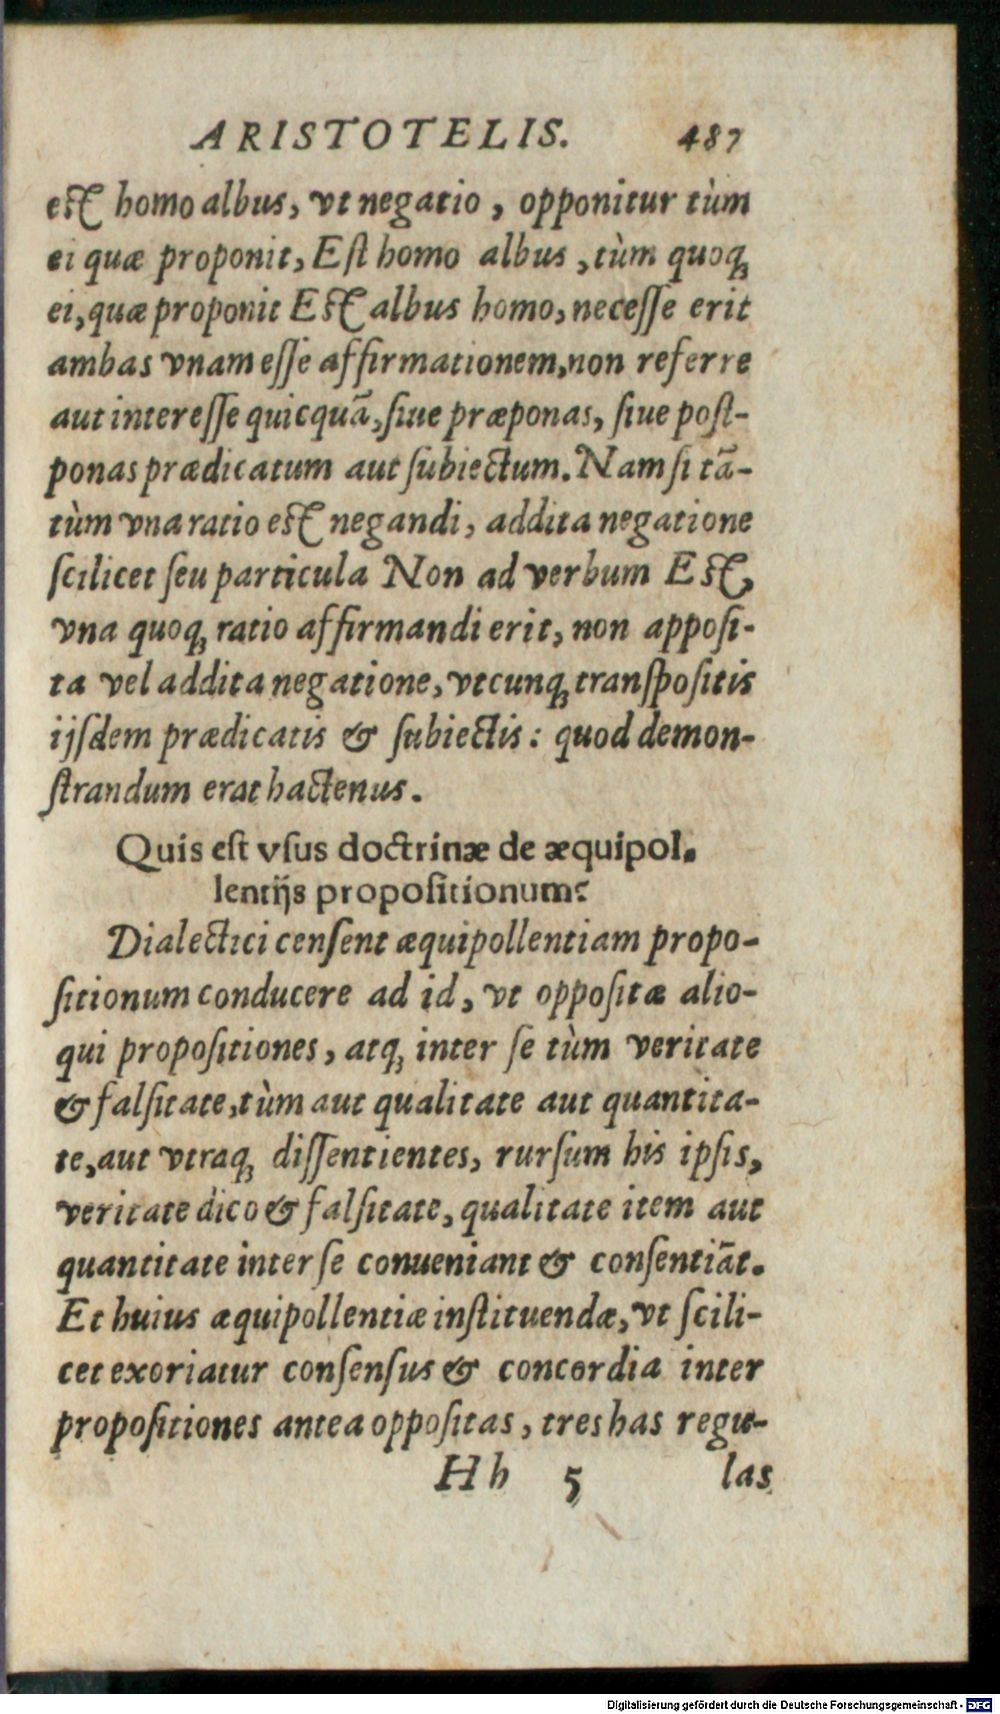 ARISTOTELIS. 487
eſt homo albus, vt negatio, opponitur tùm
ei quæ proponit, Eſt homo albus, tùm quoq;
ei, quæ proponit Eſt albus homo, neceſſe erit
ambas vnam eſſe affirmationem, non referre
aut intereſſe quicquã, ſiue præponas, ſiue poſt-
ponas prædicatum aut ſubiectum. Nam ſi tã-
tùm vna ratio eſt negandi, addita negatione
ſcilicet ſeu particula Non ad verbum Eſt,
vna quoq; ratio affirmandi erit, non appoſi-
ta vel addita negatione, vtcunq; tranſpoſitis
ijſdem prædicatis & ſubiectis: quod demon-
ſtrandum erat hactenus.
Quis eſt vſus doctrinæ de æquipol-
lentijs propoſitionum?
Dialectici cenſent æquipollentiam propo-
ſitionum conducere ad id, vt oppoſitæ alio-
qui propoſitiones, atq; inter ſe tùm veritate
& falſitate, tùm aut qualitate aut quantita-
te, aut vtraq; diſſentientes, rurſum his ipſis,
veritate dico & falſitate, qualitate item aut
quantitate inter ſe conueniant & conſentiãt.
Et huius æquipollentiæ inſtituendæ, vt ſcili-
cet exoriatur conſenſus & concordia inter
propoſitiones antea oppoſitas, tres has regu-
Hh 5 las
Digitalisierung gefördert durch die Deutsche Forschungsgemeinschaft - DFG